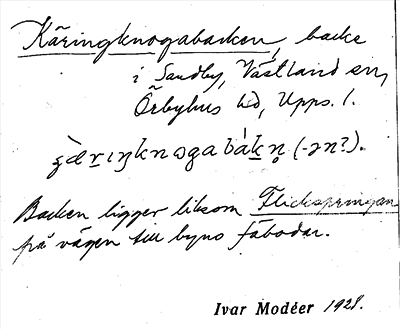 Käringknogabacken, backe
i Sandby, Västland sn,
Örbyhus hd, Upps. l.
(-ən?).
Backen ligger liksom Flickspringan
på vägen till byns fäbodar.
Ivar Modéer 1928.